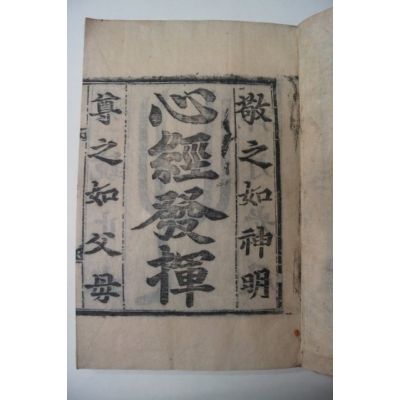 敬之如神明
心經發揮
尊之如父母